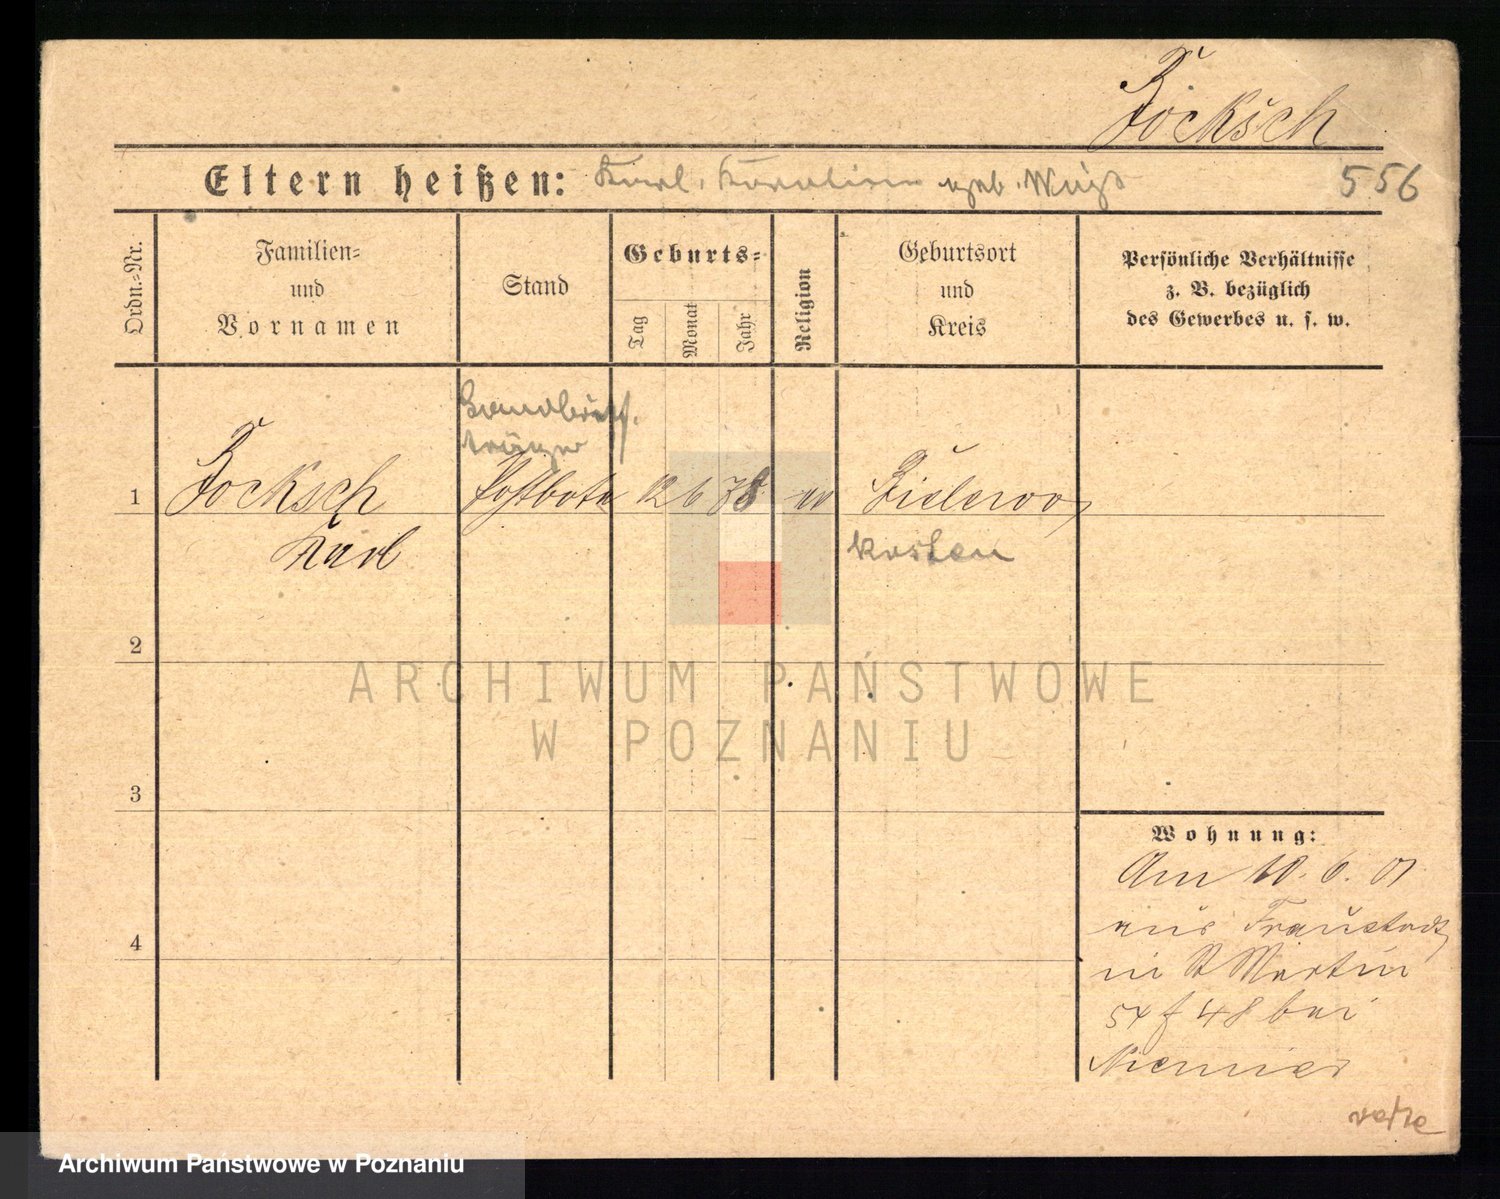 Focksch
Eltern heißen: Karl, Karoline geb. Weiß
556
Ordn.-Nr.
Familien-
und
Vornamen
Stand
Geburts-
Tag
Monat
Jahr
Religion
Geburtsort
und
Kreis
Persönliche Verhältnisse
z. B. bezüglich
des Gewerbes u. s. w.
Landbrief-
träger
1 Focksch Postbote 12 6 78 ev
Karl
Kosten
2
ARCHIWUM PAŃSTWOWE
W POZNANIU
3
Wohnung:
Am 10. 6. 01
aus Fraustadt
in St Martin
54 f 48 bei
4
Archiwum Państwowe w Poznaniu